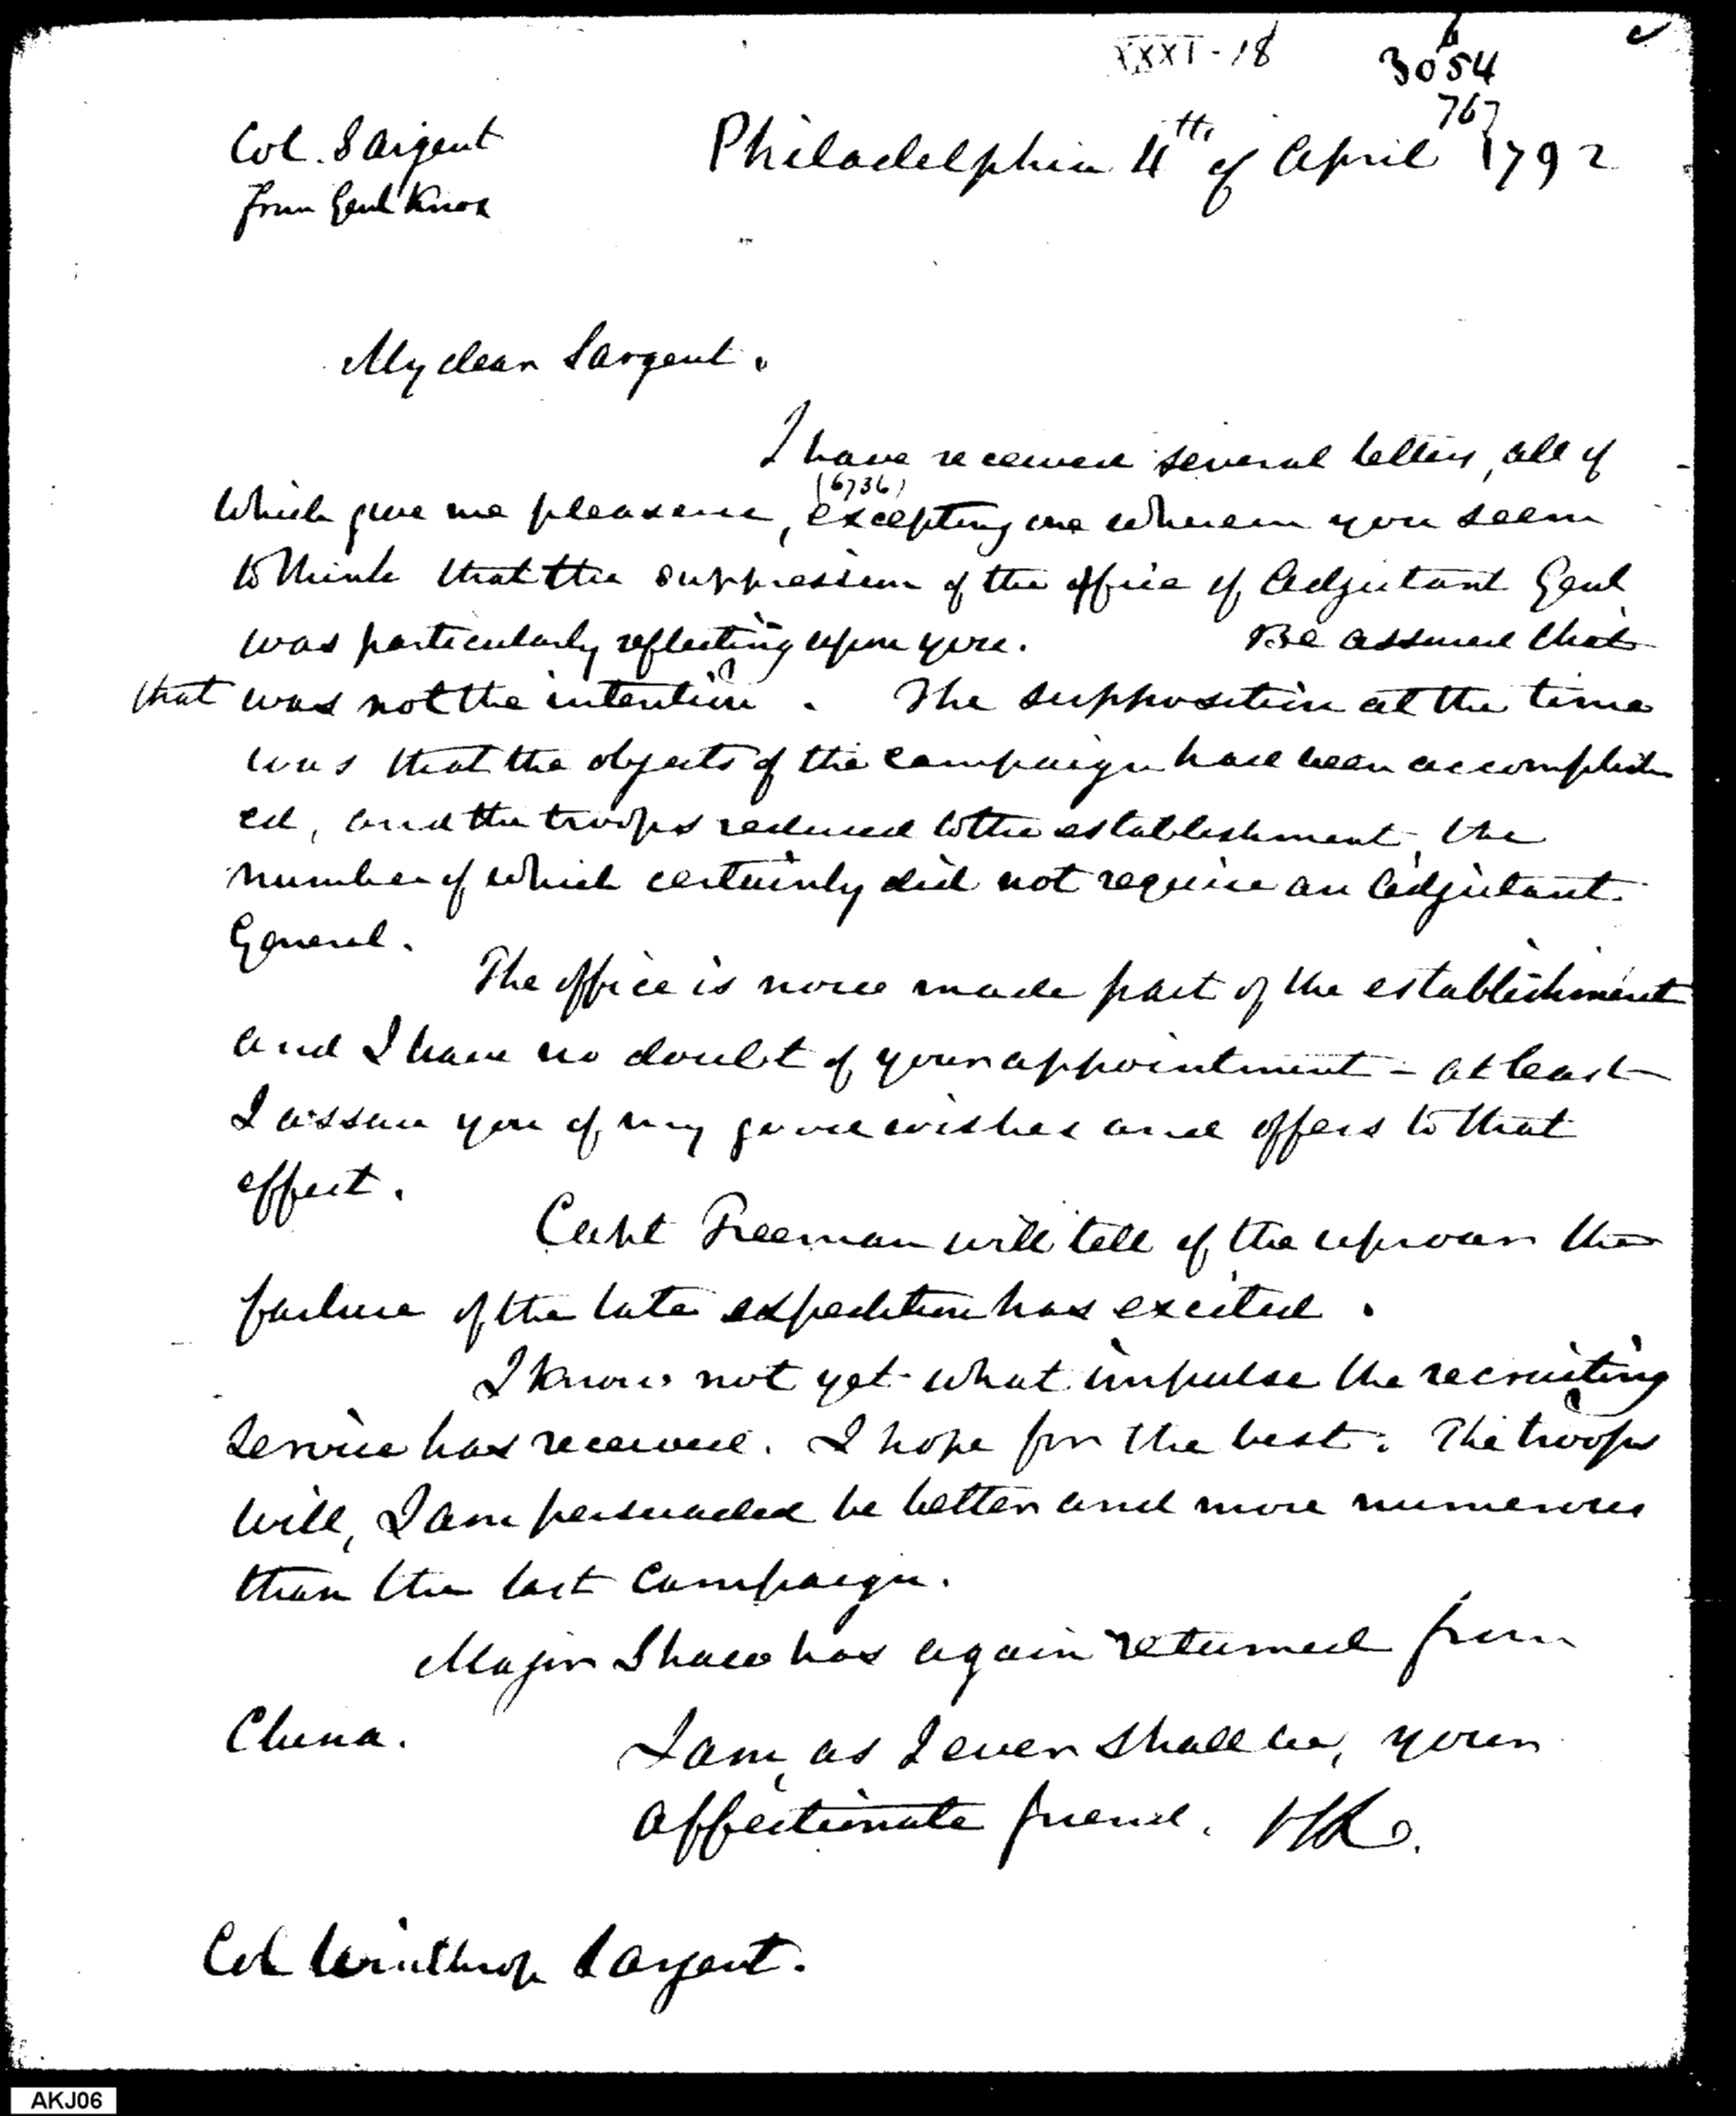 XXXI-18
3054
767
Col. Sargent
from Genl Knox
Philadelphia 4th of April 1792
My dear Sargent.
I have received several letters, all of
(6736)
which give me pleasure, excepting one wherein you seem
to think that the suppression of the office of Adjutant Genl
was particularly reflecting upon you. Be assured that
that was not the intention. The supposition at the time
was that the objects of the campaign have been accomplish
ed, and the troops reduced to the establishment, the
number of which certainly did not require an Adjutant
General.
The office is now made part of the establishment
and I have no doubt of your appointment - at least
I assure you of my good wishes and offers to that
effect.
Capt Freeman will tell of the uproar the
failure of the late expedition has excited.
I know not yet what impulse the recruiting
service has received. I hope for the best. The troops
will, I am persuaded be better and more numerous
than the last campaign.
Major Shaw has again returned from
China.
I am, as I ever shall be, your
affectionate friend. HK.
Col Winthrop Sargent.
AKJ06